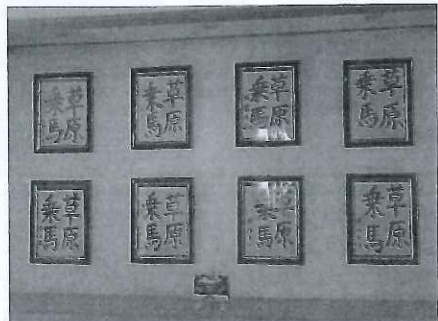 草原
乗馬
草原
乗馬
草原
乗馬
草原
乗馬
草原
乗馬
草原
乗馬
草原
乗馬
草原
乗馬